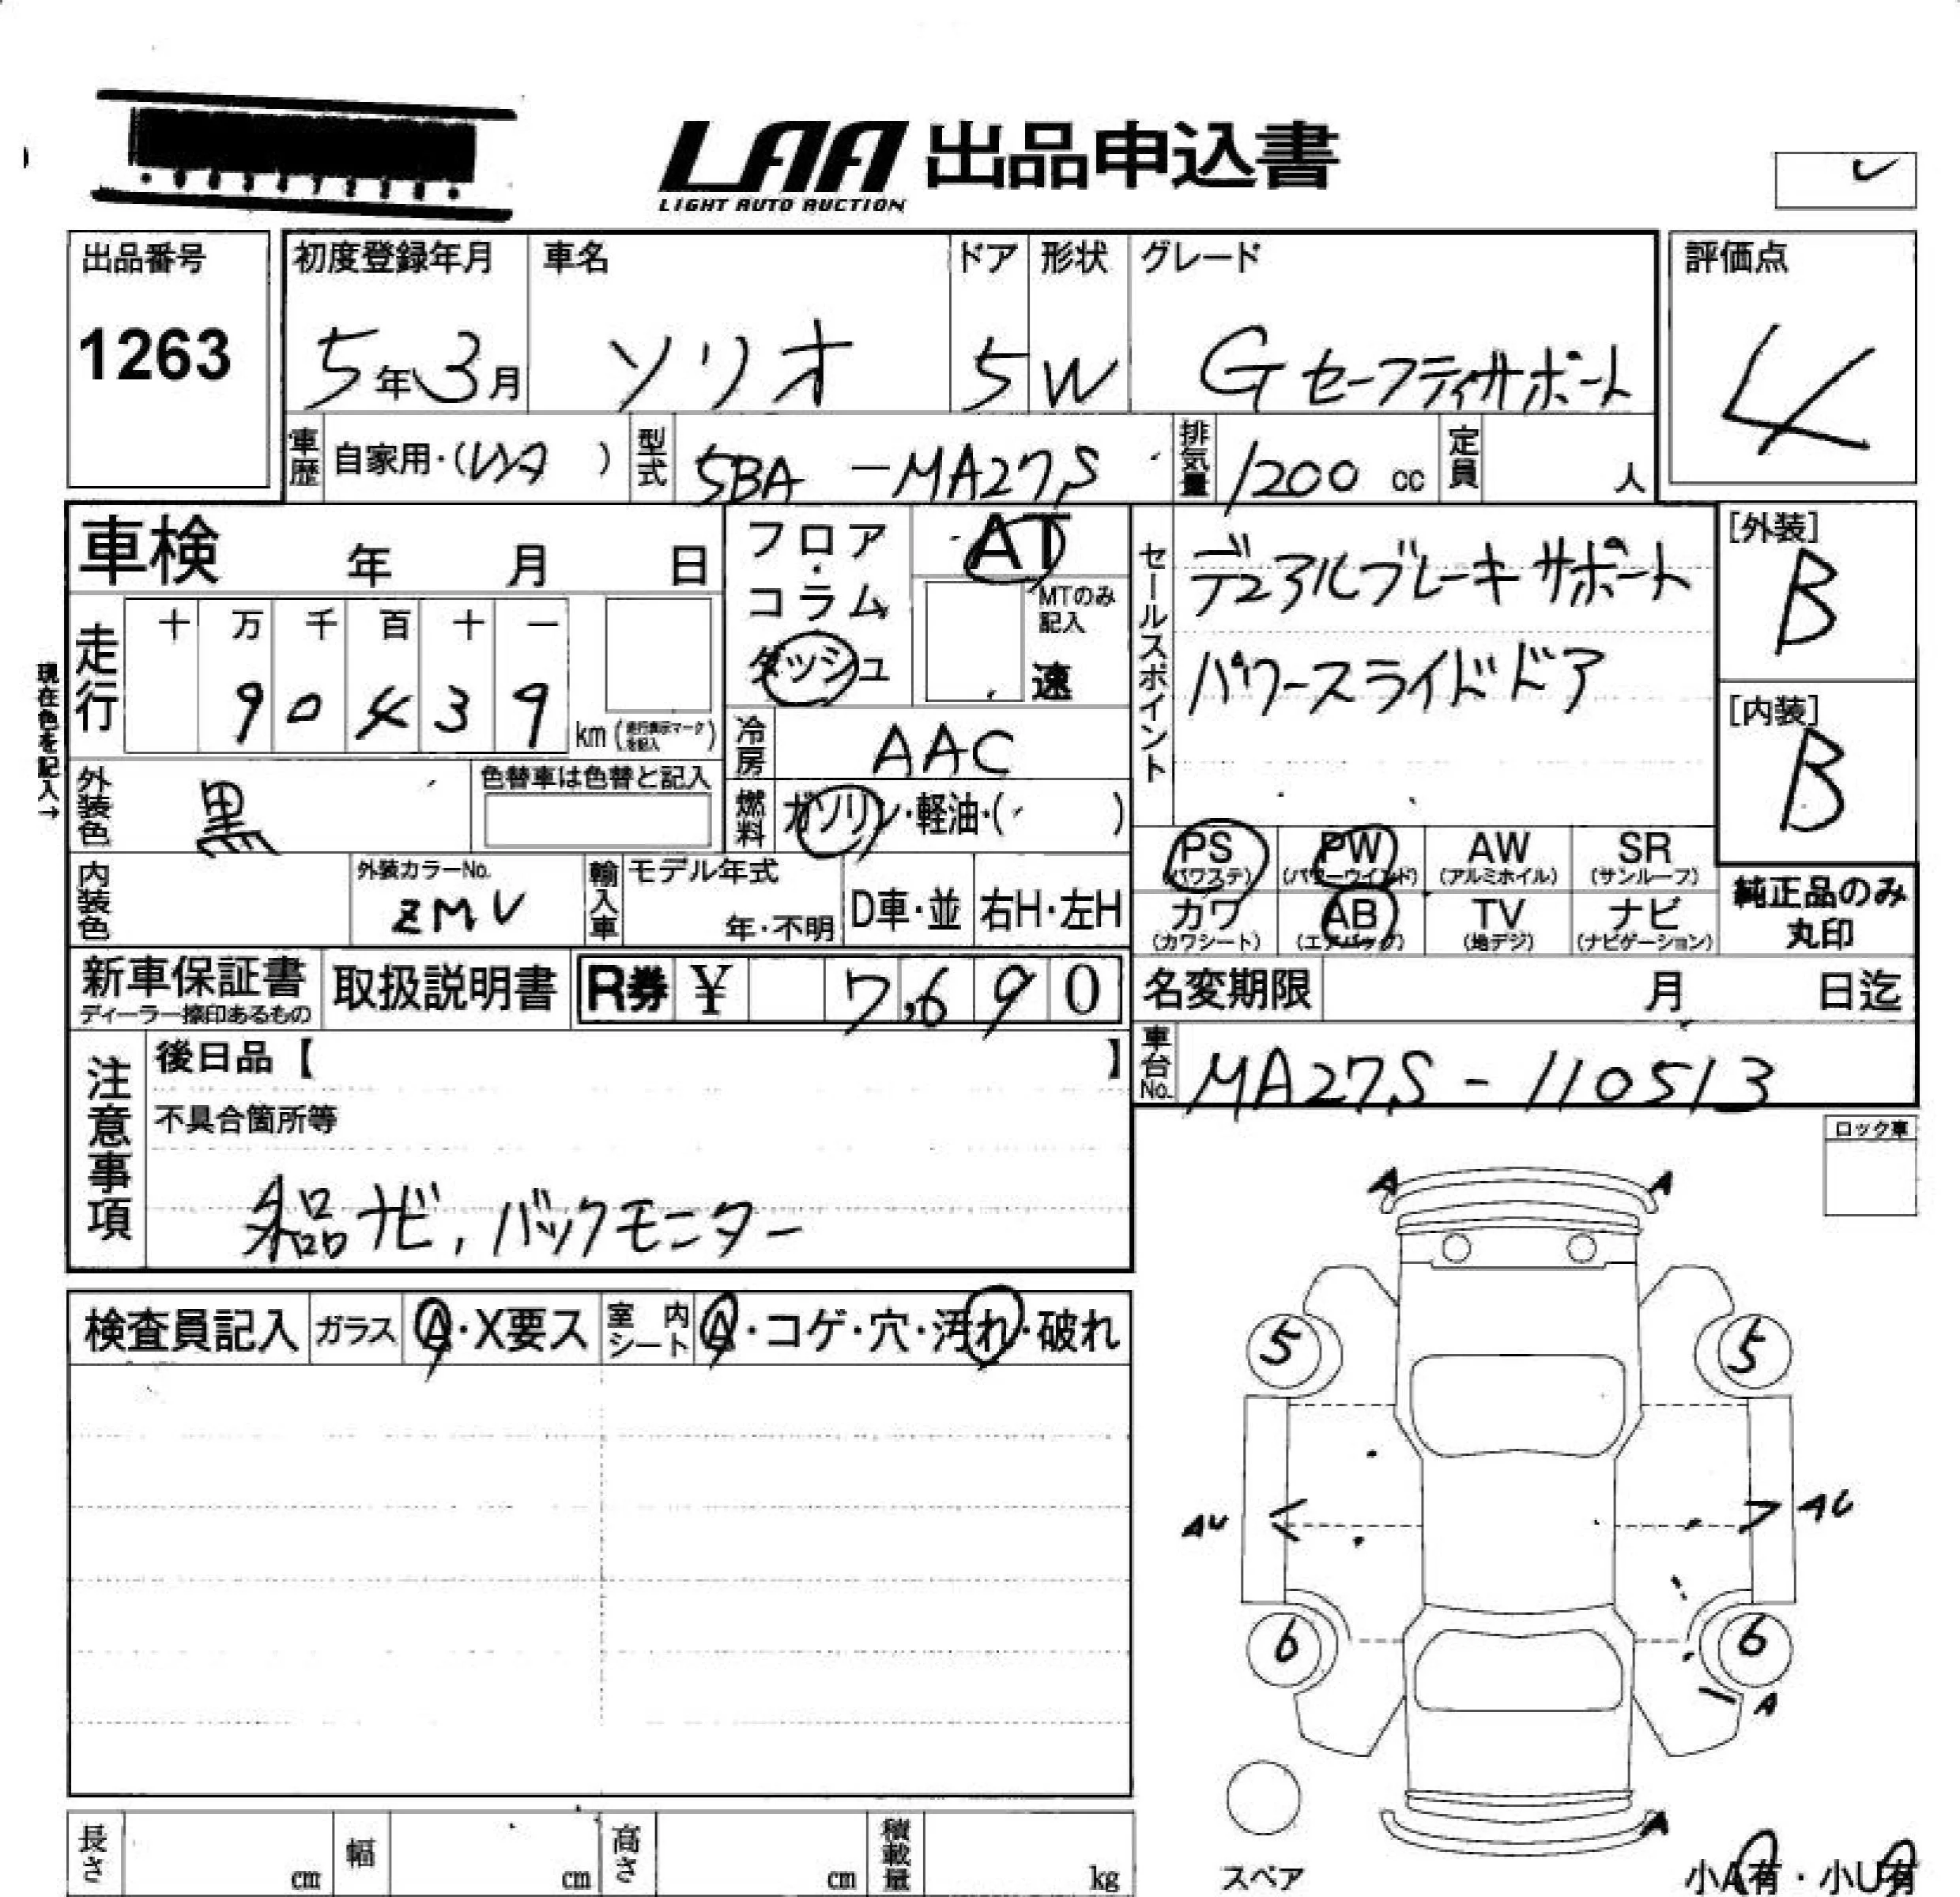 LAA 出品申込書
LIGHT AUTO AUCTION
出品番号
1263
初度登録年月
5年3月
車名
ソリオ
ドア
5
形状
W
グレード
Gセーフティサポート
評価点
4
車歴
自家用・(レンタ )
型式
5BA -MA27S
排気量
1200 cc
定員
人
車検 年 月 日
走行
十 万 千 百 十 一
9 0 4 3 9
km (走行表示マークを記入)
現在色を記入→
フロア・コラム
ダッシュ
AT
MTのみ記入
速
冷房
AAC
燃料
ガソリン・軽油・( )
セールスポイント
デュアルブレーキサポート
パワースライドドア
[外装]
B
[内装]
B
外装色
黒
色替車は色替と記入
内装色
外装カラーNo.
ZMV
輸入車
モデル年式
年・不明
D車・並
右H・左H
PS
(パワステ)
PW
(パワーウインド)
AW
(アルミホイル)
SR
(サンルーフ)
カワ
(カワシート)
AB
(エアバック)
TV
(地デジ)
ナビ
(ナビゲーション)
純正品のみ
丸印
新車保証書
ディーラー捺印あるもの
取扱説明書
R券 ¥ 7,690
名変期限 月 日迄
車台No.
MA27S-110513
注意事項
後日品【 】
不具合箇所等
ナビ, バックモニター
ロック車
検査員記入
ガラス
A・X要ス
室内シート
A・コゲ・穴・汚れ・破れ
A A
5 5
AU AU
6 6
A
A
スペア
小A有・小U有
長さ cm
幅 cm
高さ cm
積載量 kg